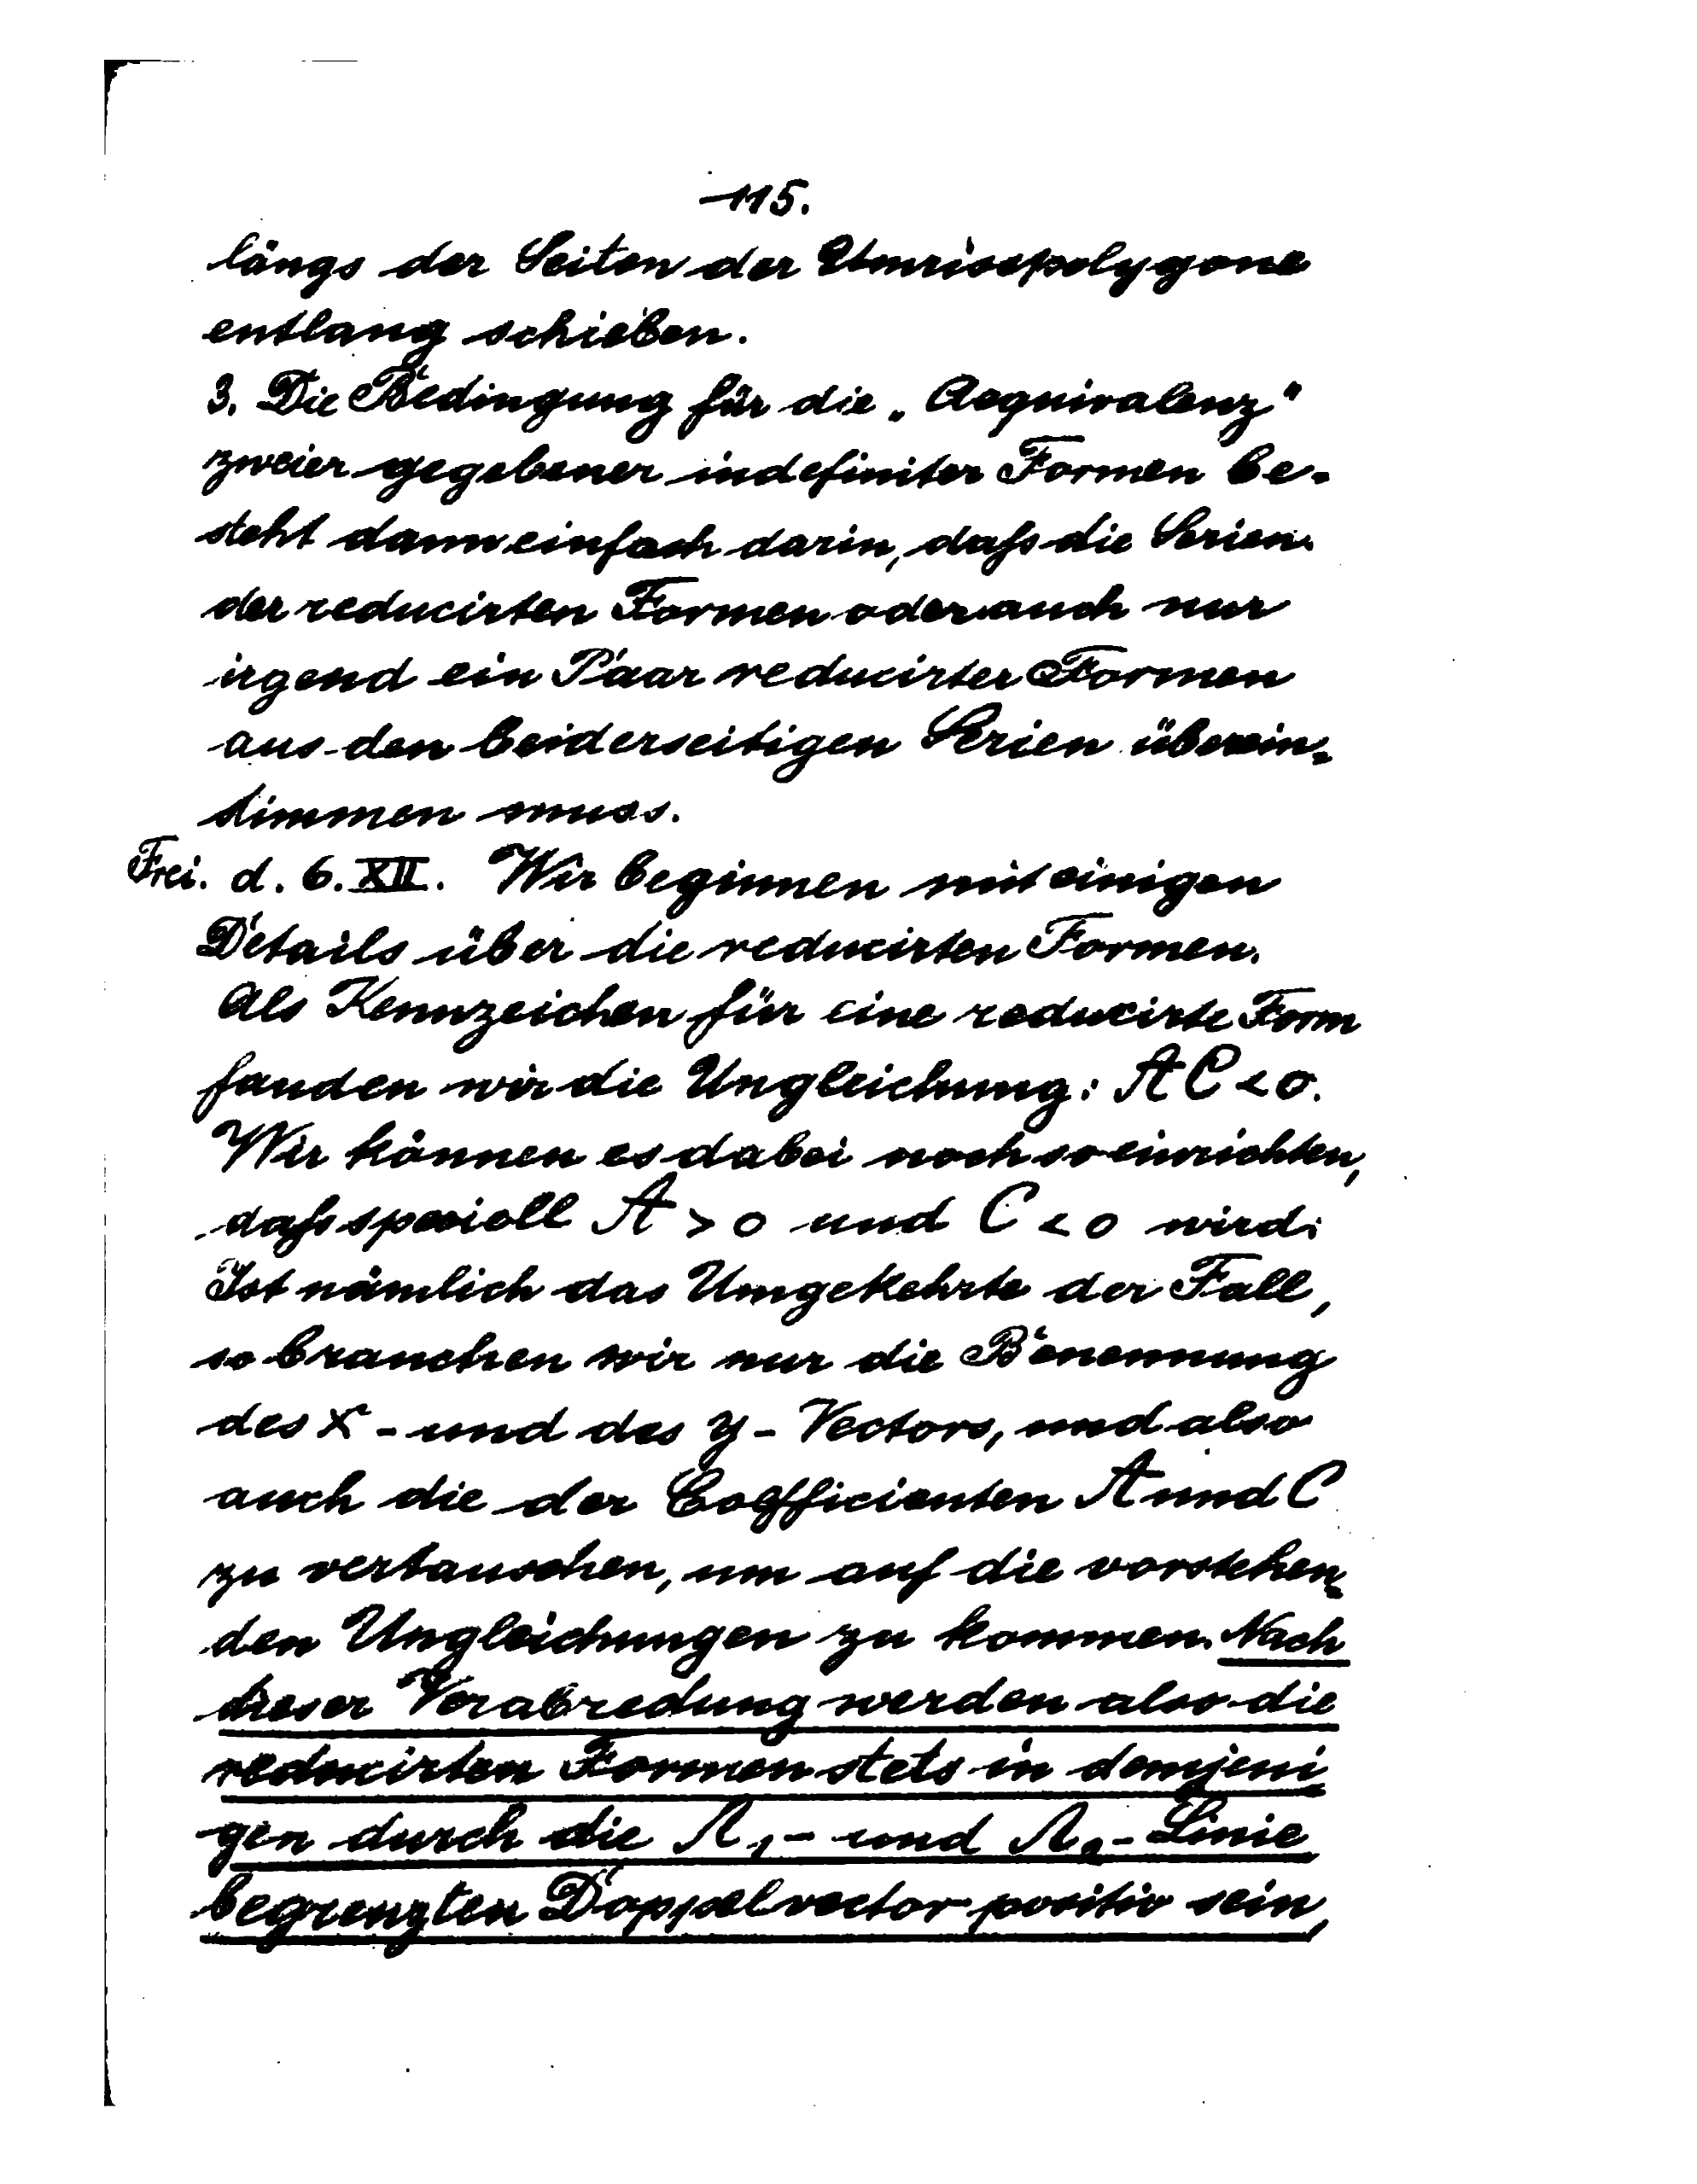 115.
längs der Seiten der Umrisspolygone
entlang schieben.
3. Die Bedingung für die „Aequivalenz"
zweier gegebener indefiniter Formen be-
steht dann einfach darin, daß die Serien
der reducirten Formen oder auch nur
irgend ein Paar reducirter Formen
aus den beiderseitigen Serien überein-
stimmen muss.
Frei. d. 6. XII. Wir beginnen mit einigen
Details über die reducirten Formen.
Als Kennzeichen für eine reducirte Form
fanden wir die Ungleichung: AC < 0.
Wir können es dabei noch so einrichten,
daß speciell A > 0 und C < 0 wird:
Ist nämlich das Umgekehrte der Fall,
so brauchen wir nur die Benennung
des x- und des y-Vectors, und also
auch die der Coefficienten A und C
zu vertauschen, um auf die vorstehen-
den Ungleichungen zu kommen. Nach
dieser Verabredung werden also die
reducirten Formen stets in demjeni
gen durch die Λ₁- und Λ₂-Linie
begrenzten Doppelvector positiv sein,